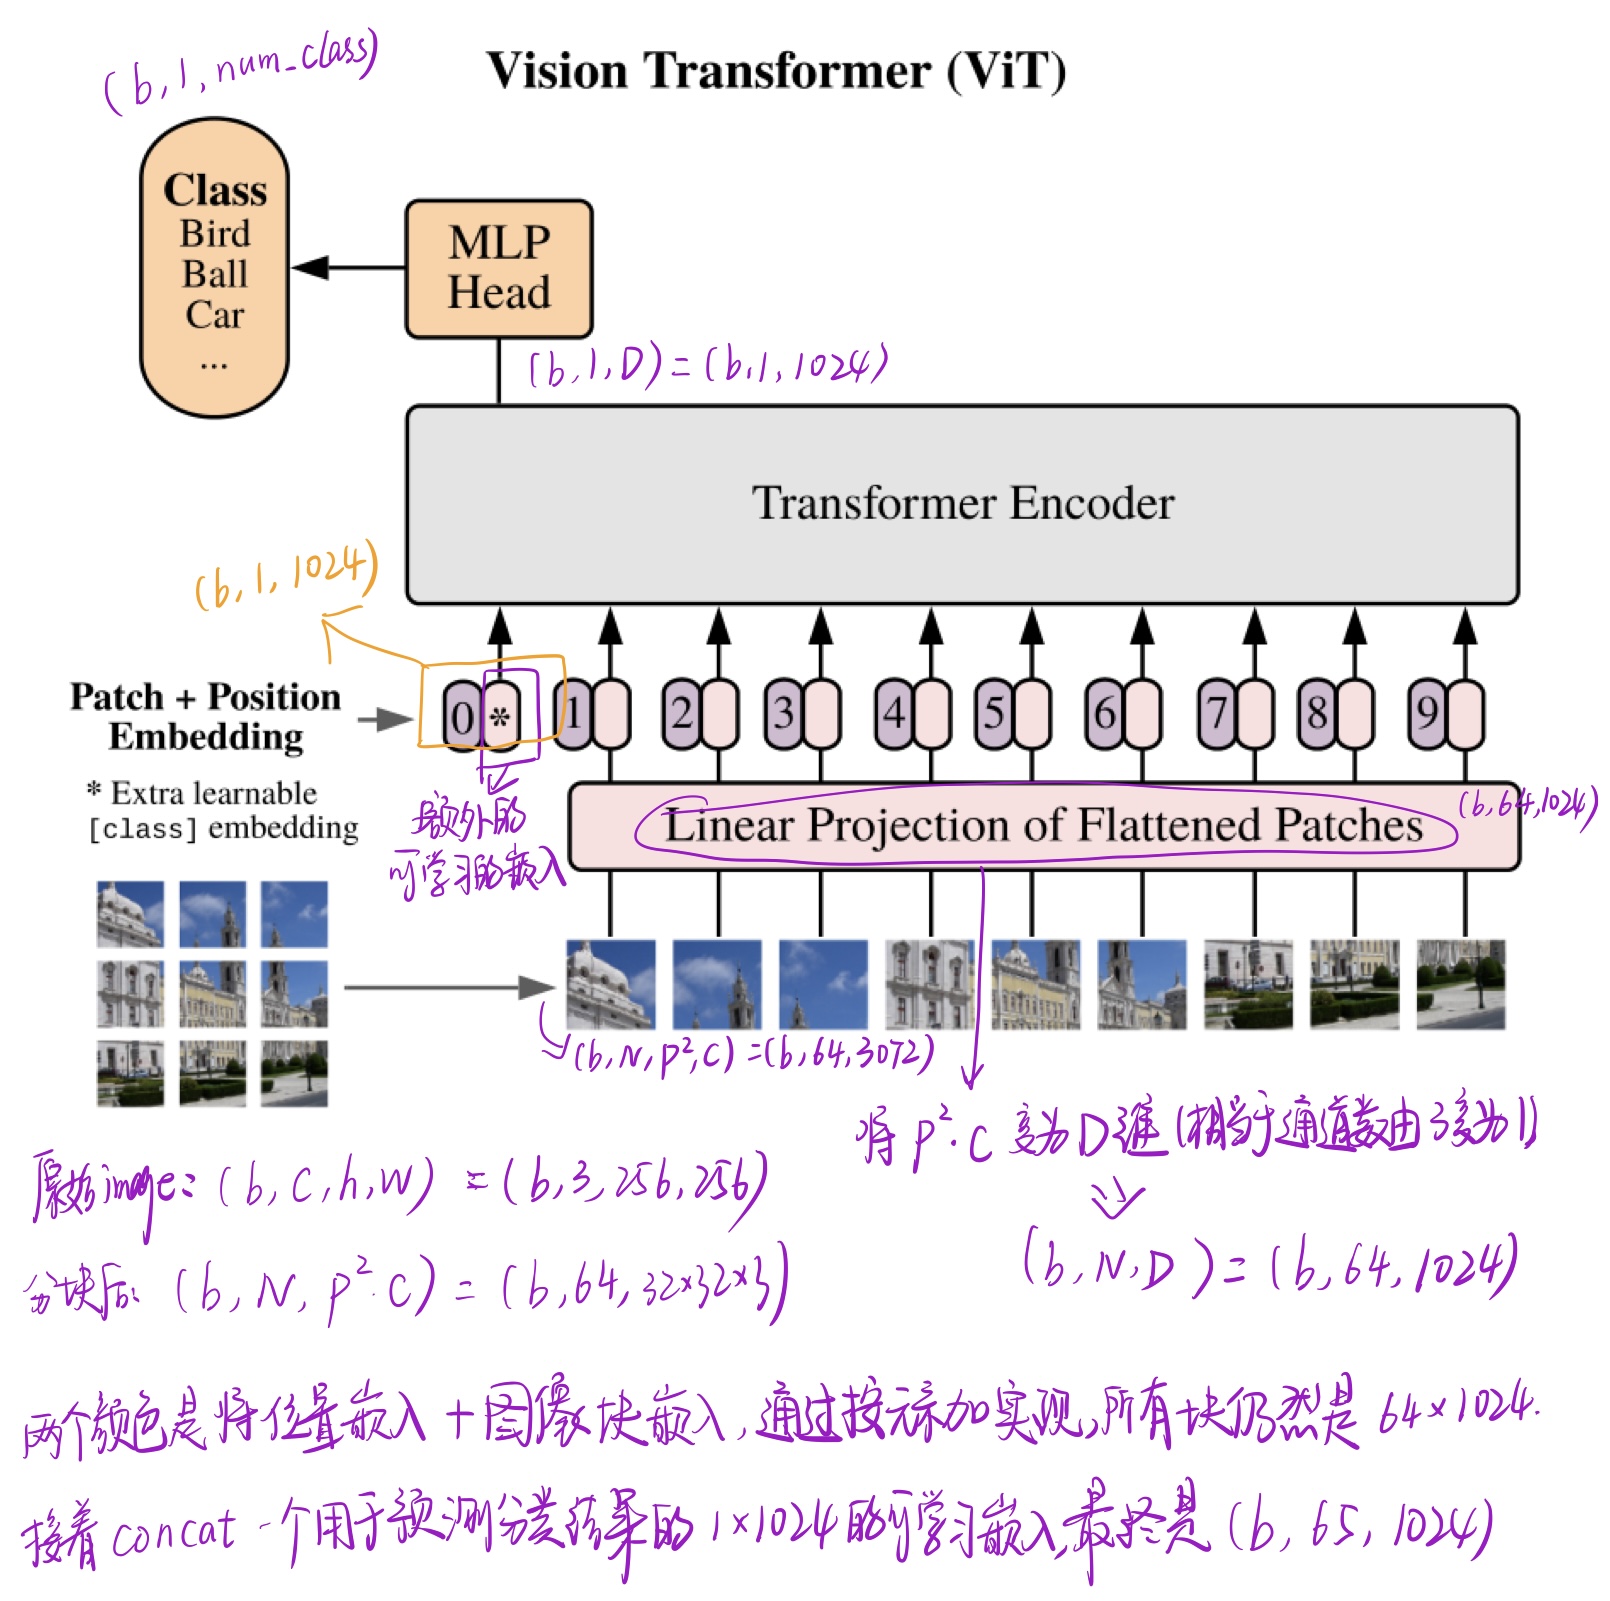 (b,1,num_class)
Vision Transformer (ViT)
Class
Bird
Ball
Car
...
MLP
Head
(b,1,D)=(b,1,1024)
Transformer Encoder
(b,1,1024)
Patch + Position
Embedding
0 * 1 2 3 4 5 6 7 8 9
* Extra learnable
[class] embedding
额外的
可学习的嵌入
Linear Projection of Flattened Patches
(b,64,1024)
(b,N,P²,C)=(b,64,3072)
将P²·C变为D维(相当于通道数由3变为1)
原始image:(b,C,h,W)=(b,3,256,256)
分块后:(b,N,P²·C)=(b,64,32×32×3)
(b,N,D)=(b,64,1024)
两个颜色是将位置嵌入+图像块嵌入,通过按元素加实现,所有块仍然是64×1024.
接着concat一个用于预测分类结果的1×1024的可学习嵌入,最终是(b,65,1024)